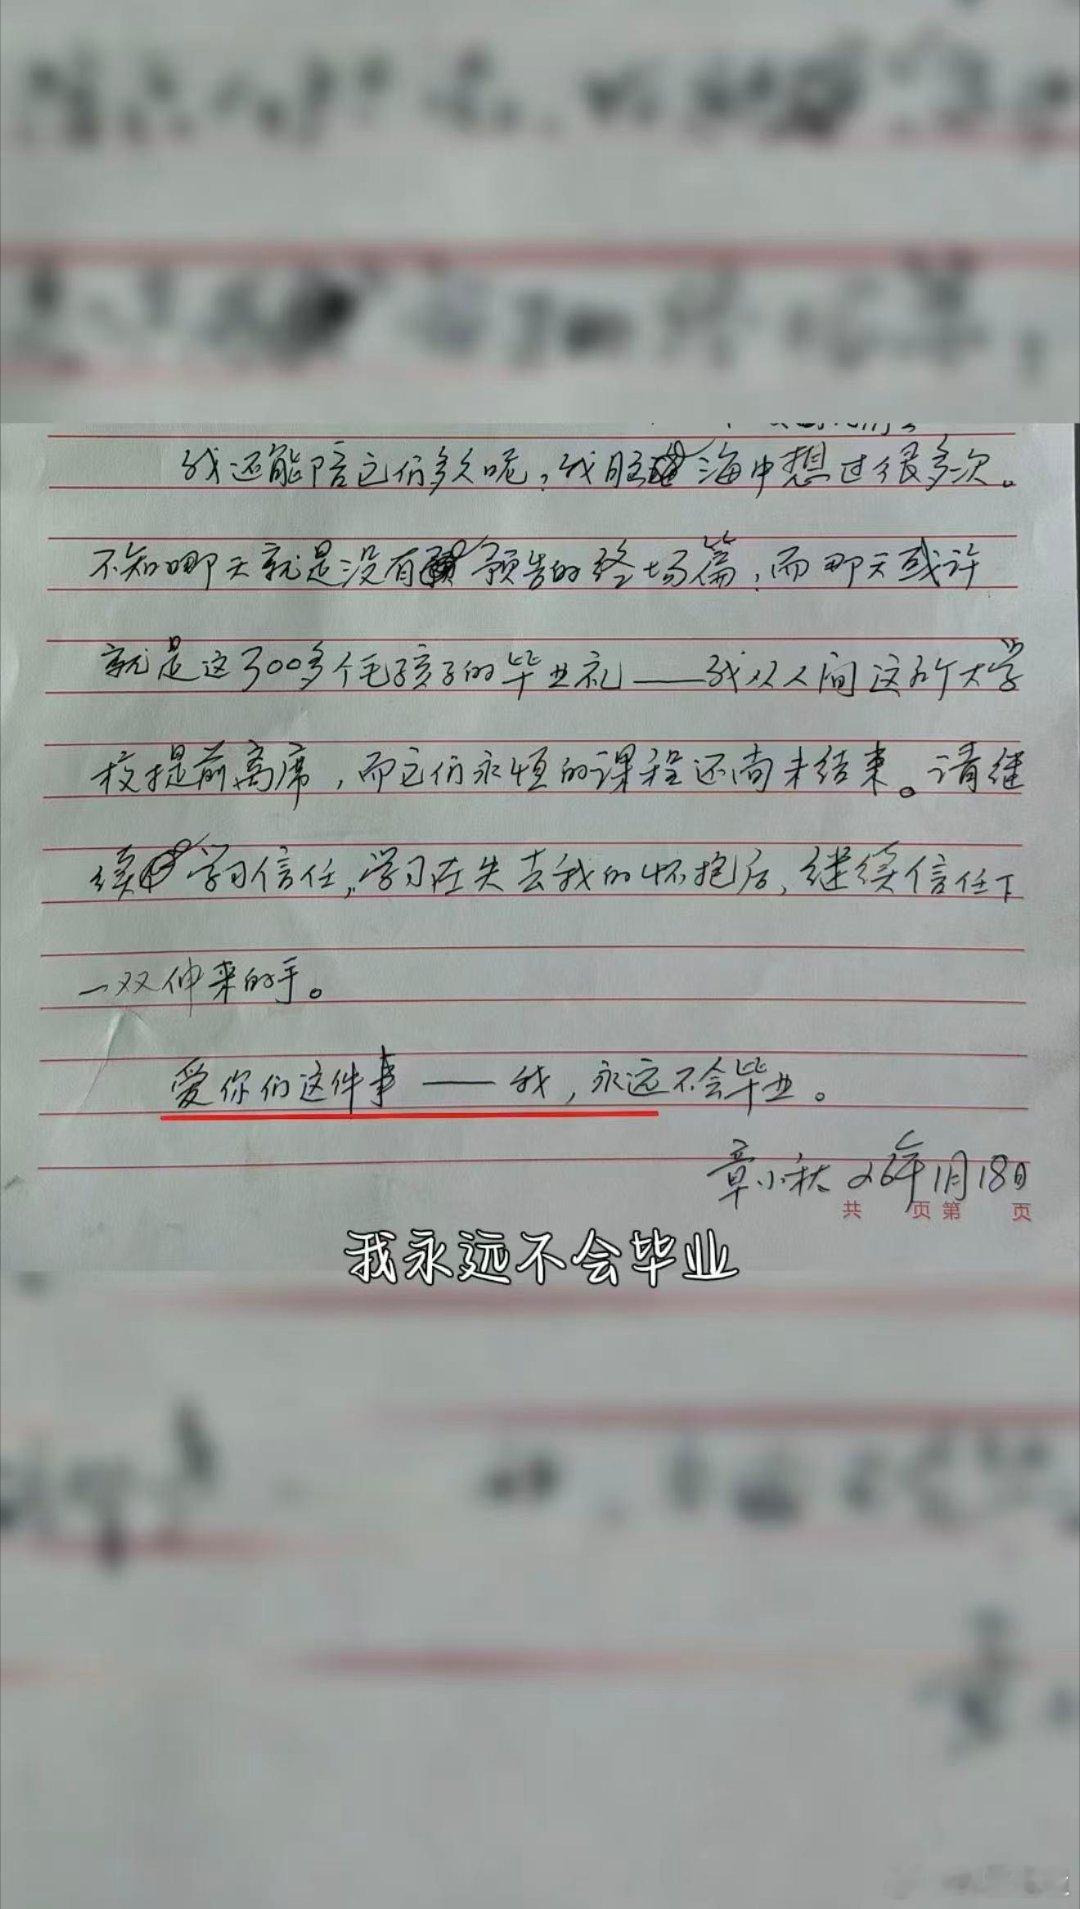 我还能陪它们多久呢，我脑海中想过很多次。
不知哪天就是没有预告的终场篇，而那天或许
就是这300多个毛孩子的毕业礼——我从人间这所大学
校提前离席，而它们永恒的课程还尚未结束。请继
续学习信任，学习在失去我的怀抱后，继续信任下
一双伸来的手。
爱你们这件事——我，永远不会毕业。
章小秋 26年1月18日
共 页 第 页
我永远不会毕业